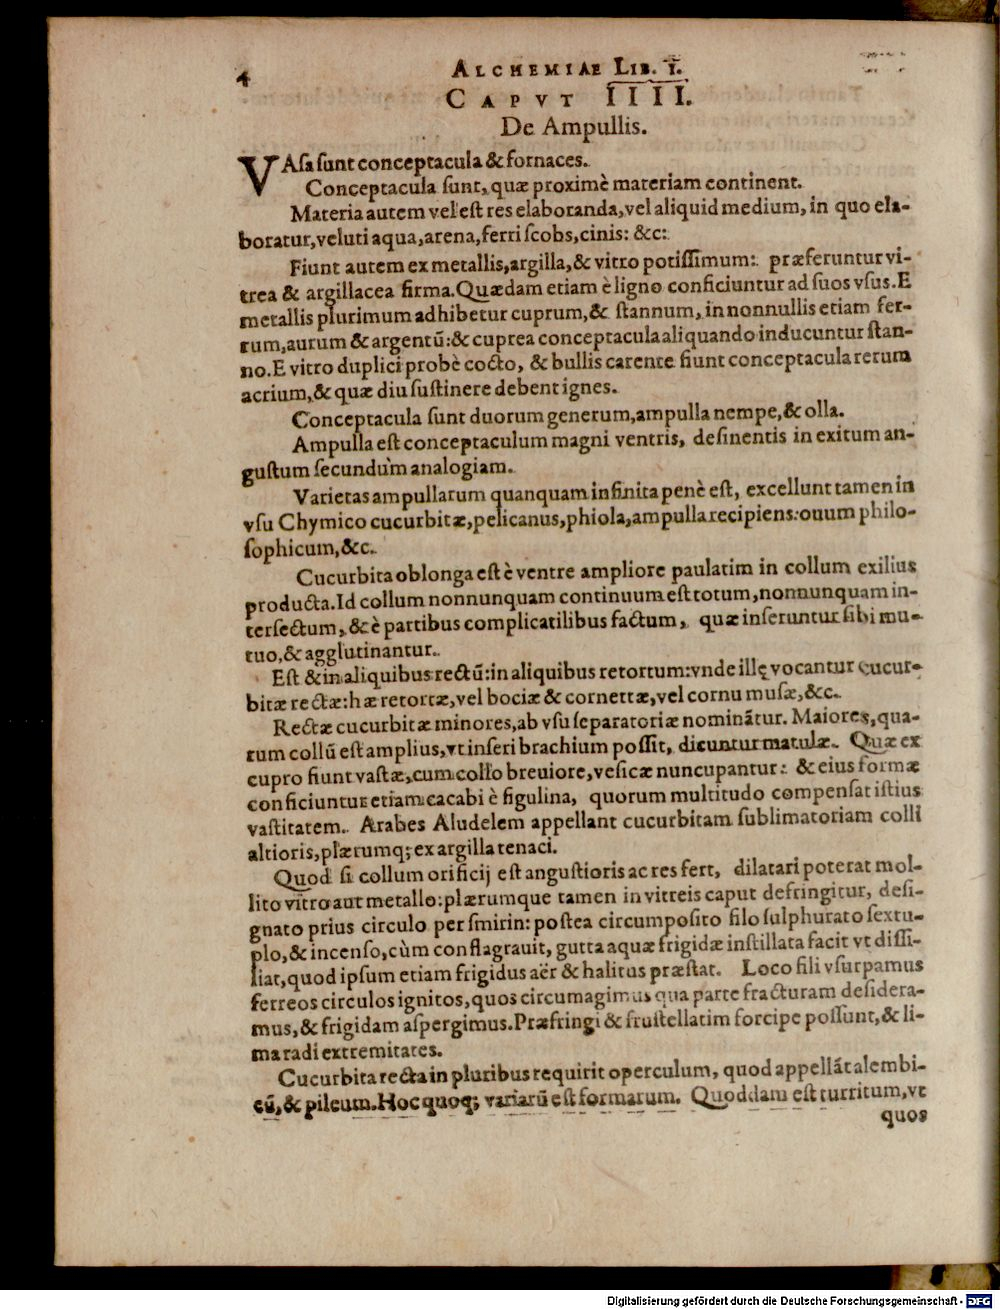 4 ALCHEMIAE LIB. I.
CAPVT IIII.
De Ampullis.
VAſa ſunt conceptacula & fornaces.
Conceptacula ſunt, quæ proximè materiam continent.
Materia autem vel eſt res elaboranda, vel aliquid medium, in quo ela-
boratur, veluti aqua, arena, ferri ſcobs, cinis: &c:
Fiunt autem ex metallis, argilla, & vitro potiſſimum: præferuntur vi-
trea & argillacea firma. Quædam etiam è ligno conficiuntur ad ſuos vſus. E
metallis plurimum adhibetur cuprum, & ſtannum, in nonnullis etiam fer-
rum, aurum & argentũ: & cuprea conceptacula aliquando inducuntur ſtan-
no. E vitro duplici probè cocto, & bullis carente fiunt conceptacula rerum
acrium, & quæ diu ſuſtinere debent ignes.
Conceptacula ſunt duorum generum, ampulla nempe, & olla.
Ampulla eſt conceptaculum magni ventris, deſinentis in exitum an-
guſtum ſecundum analogiam.
Varietas ampullarum quanquam infinita penè eſt, excellunt tamen in
vſu Chymico cucurbitæ, pelicanus, phiola, ampulla recipiens: ouum philo-
ſophicum, &c.
Cucurbita oblonga eſt è ventre ampliore paulatim in collum exilius
producta. Id collum nonnunquam continuum eſt totum, nonnunquam in-
terſectum, & è partibus complicatilibus factum, quæ inſeruntur ſibi mu-
tuo, & agglutinantur.
Eſt & in aliquibus rectũ: in aliquibus retortum: vnde illę vocantur cucur-
bitæ rectæ: hæ retortæ, vel bociæ & cornettæ, vel cornu muſæ, &c.
Rectæ cucurbitæ minores, ab vſu ſeparatoriæ nominãtur. Maiores, qua-
rum collũ eſt amplius, vt inſeri brachium poſſit, dicuntur matulæ. Quæ ex
cupro fiunt vaſtæ, cum collo breuiore, veſicæ nuncupantur: & eius formæ
conficiuntur etiam cacabi è figulina, quorum multitudo compenſat iſtius
vaſtitatem. Arabes Aludelem appellant cucurbitam ſublimatoriam colli
altioris, plærumq; ex argilla tenaci.
Quod ſi collum orificij eſt anguſtioris ac res fert, dilatari poterat mol-
lito vitro aut metallo: plærumque tamen in vitreis caput defringitur, deſi-
gnato prius circulo per ſmirin: poſtea circumpoſito filo ſulphurato ſextu-
plo, & incenſo, cùm conflagrauit, gutta aquæ frigidæ inſtillata facit vt diſſi-
liat, quod ipſum etiam frigidus aër & halitus præſtat. Loco fili vſurpamus
ferreos circulos ignitos, quos circumagimus qua parte fracturam deſidera-
mus, & frigidam aſpergimus. Præfringi & fruſtellatim forcipe poſſunt, & li-
ma radi extremitates.
Cucurbita recta in pluribus requirit operculum, quod appellãt alembi-
cũ, & pileum. Hoc quoq; variarũ eſt formarum. Quoddam eſt turritum, vt
quos
Digitalisierung gefördert durch die Deutsche Forschungsgemeinschaft - DFG